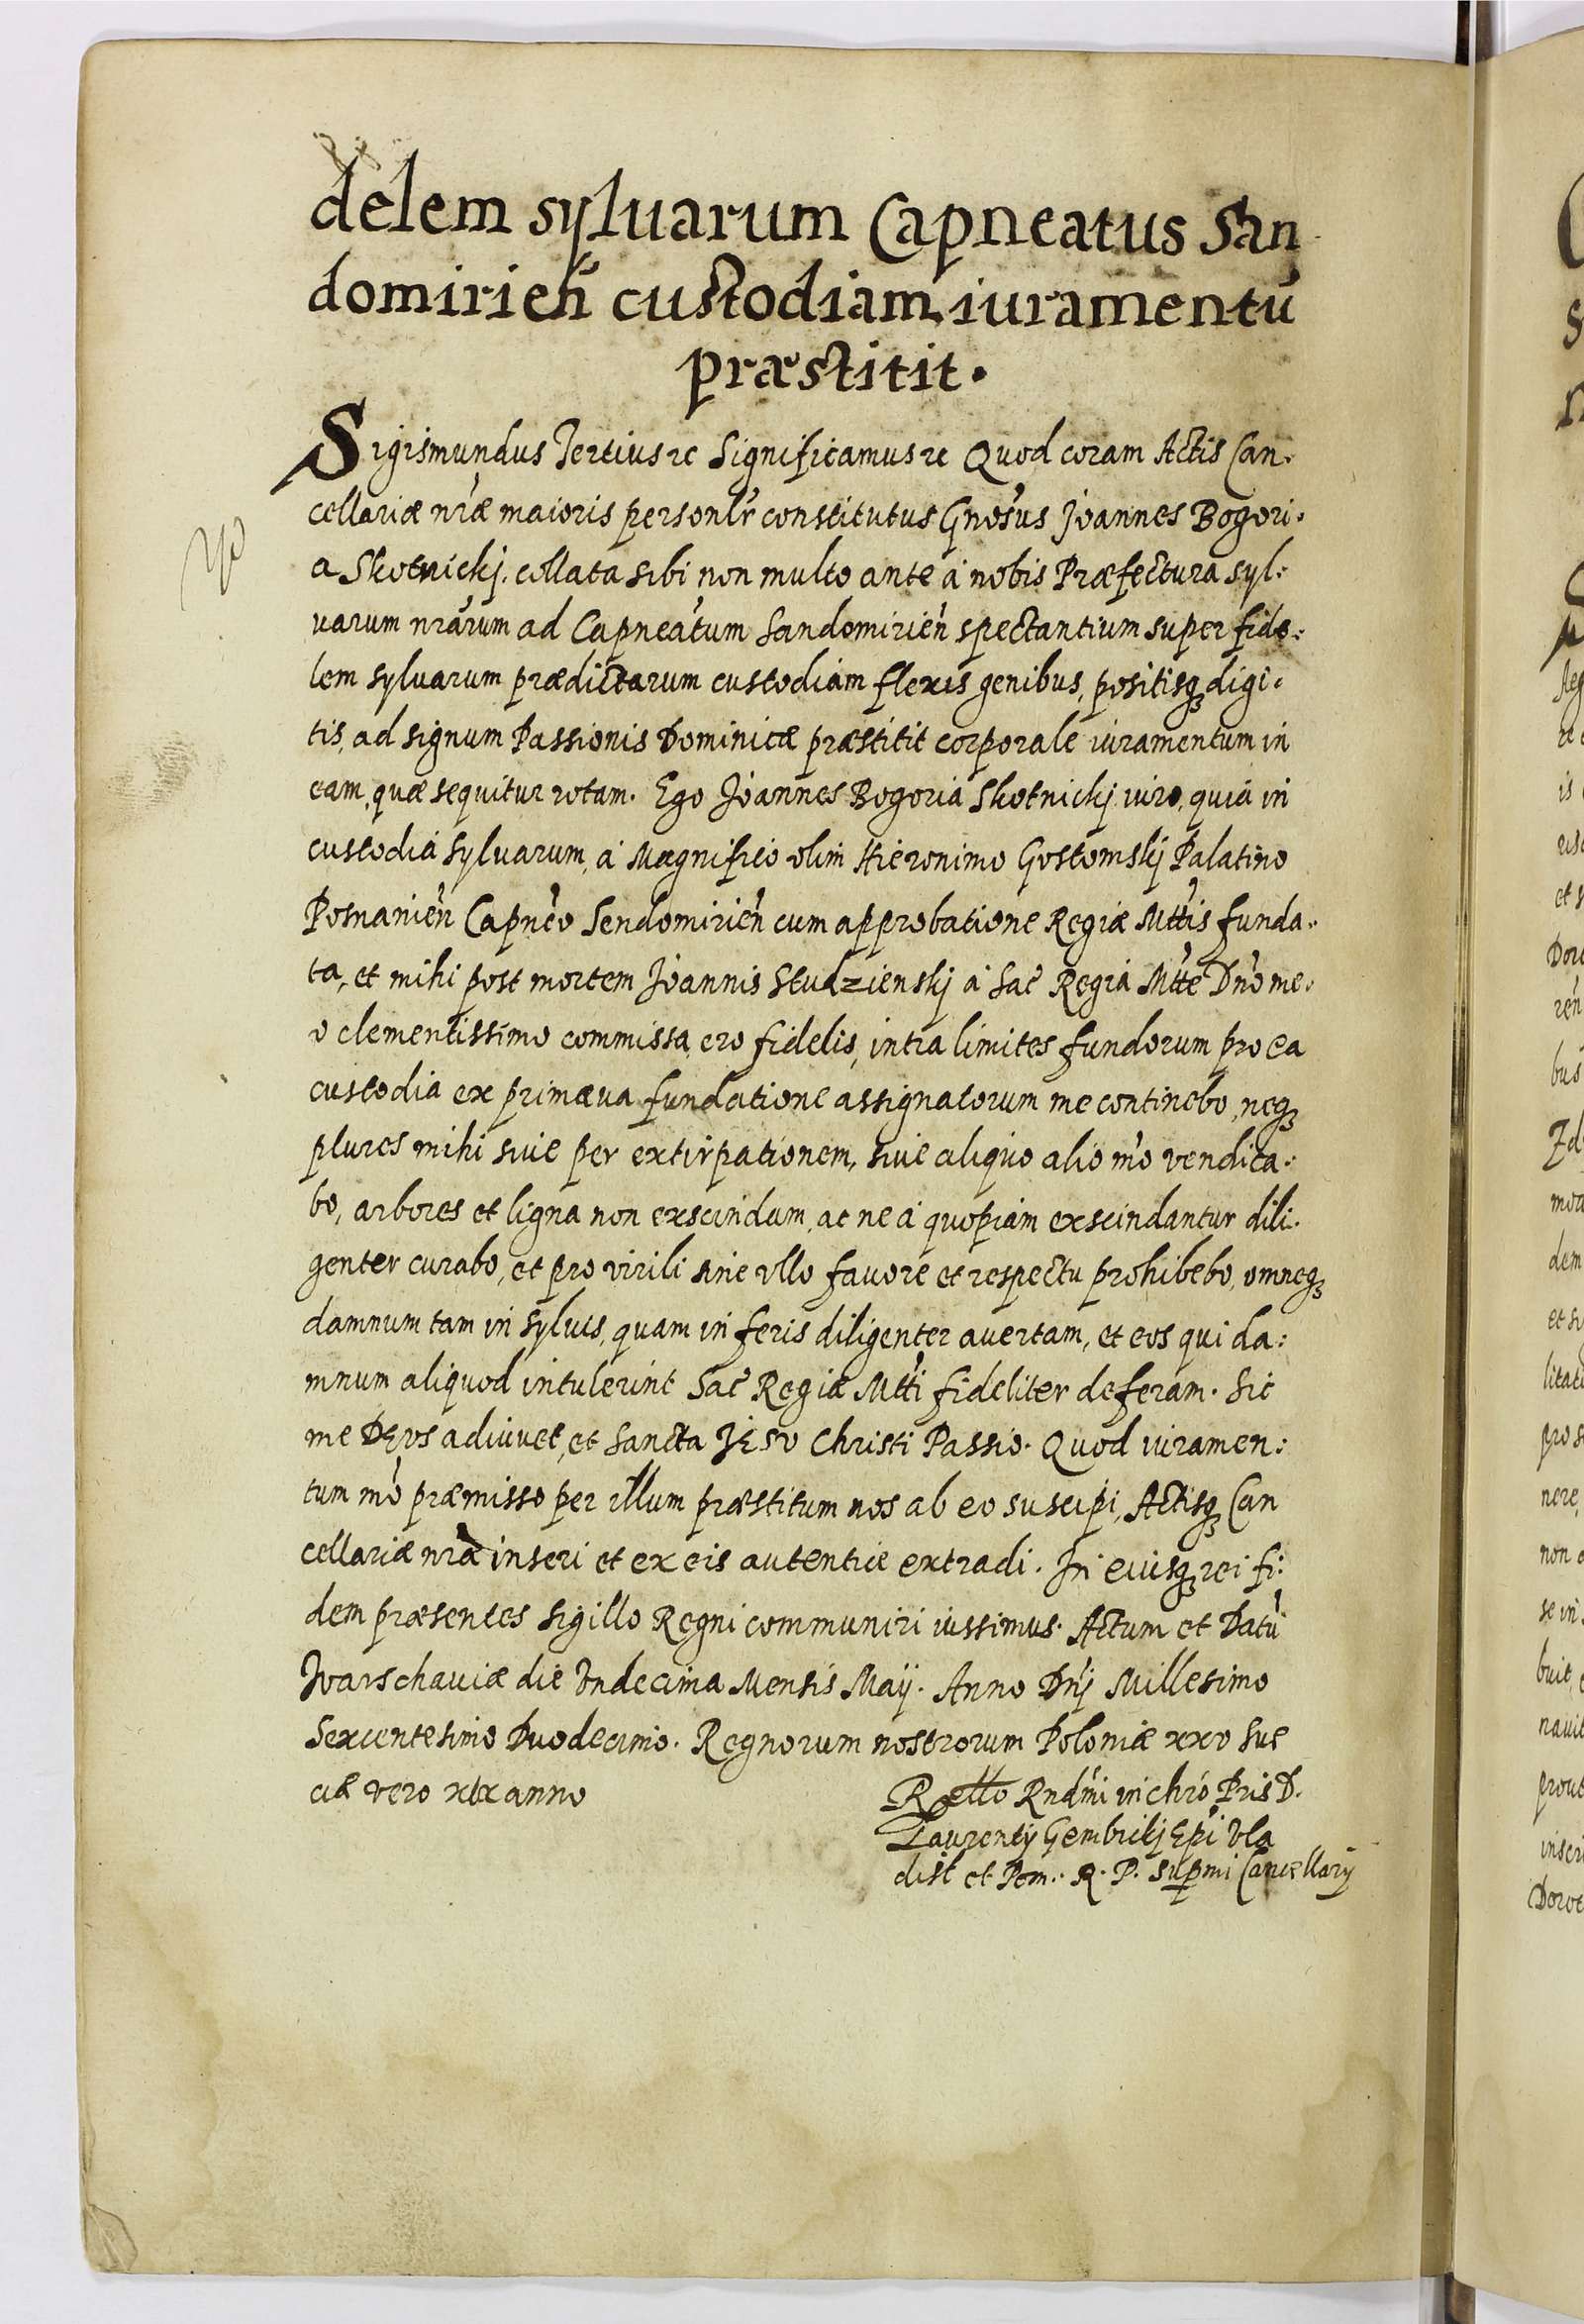 delem sylvarum Capneatus San
domirień custodiam, iuramentū
præstitit.
Sigismundus Tertius ꝛc Significamus ꝛc Quod coram Actis Can-
cellariæ nr̄æ maioris personlr̄ constitutus Gnōsus Joannes Bogori-
a Skotnickj, collata sibi non multo ante à nobis Præfectura syl-
varum nr̄arum ad Capneātum Sandomirień spectantium super fide-
lem sylvarum prædictarum custodiam flexis genibus, positisqꝫ digi-
tis, ad signum Passionis Dominicæ præstitit corporale iuramentum in
eam, quæ sequitur rotam. Ego Joannes Bogoria Skotnickj iuro, quia in
custodia sylvarum, à Magnifico olim Hieronimo Gostomskj Palatino
Posnanień Capnēo Sendomirień cum approbatione Regiæ Mttis funda-
ta, et mihi post mortem Joannis Studzienskj à Sac Regia Mtte Dn̄o me-
o clementissimo commissa, ero fidelis, intra limites fundorum pro ea
custodia ex primæva fundatione assignatorum me continebo, neqꝫ
plures mihi sive per extirpationem, sive aliquo alio mō vendica-
bo, arbores et ligna non exscindam, ac ne à quopiam exscindantur dili-
genter curabo, et pro virili sine vllo favore et respectu prohibebo, omneqꝫ
damnum tam in sylvis, quam in feris diligenter avertam, et eos qui da:
mnum aliquod intulerint Sac Regiæ Mtti fideliter deferam. Sic
me DEVS adiuvet, et Sancta JESV Christi Passio. Quod iuramen:
tum mō præmisso per illum præstitum nos ab eo suscipi, Actisqꝫ Can
cellariæ nr̄æ inseri et ex eis autentice extradi. In cuiusqꝫ rei fi:
dem præsentes sigillo Regni communiri iussimus. Actum et Datū
Warschaviæ die Vndecima Mensis Maij. Anno Dn̄j Millesimo
Sexcentesimo Duodecimo. Regnorum nostrorum Poloniæ xxv Sue
ciæ vero xix anno
Rello Rndm̄i in chrō Pris D.
Laurentij Gembickj Epī Vla
disl et Pom. R. P. supmi Cancellarij